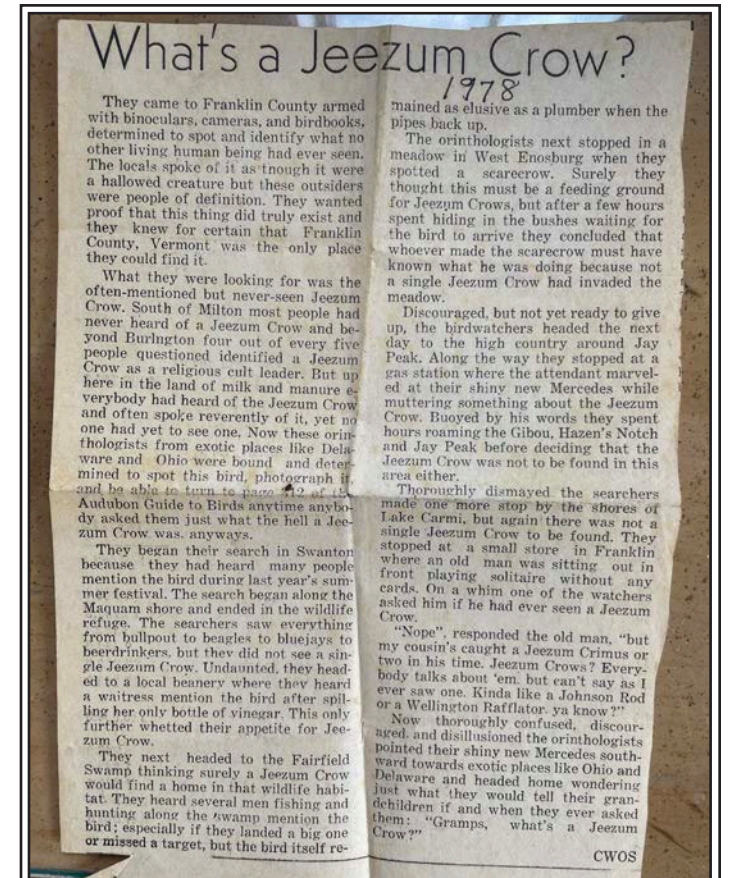 What's a Jeezum Crow?
1978
They came to Franklin County armed
with binoculars, cameras, and birdbooks,
determined to spot and identify what no
other living human being had ever seen.
The locals spoke of it as though it were
a hallowed creature but these outsiders
were people of definition. They wanted
proof that this thing did truly exist and
they knew for certain that Franklin
County, Vermont was the only place
they could find it.
What they were looking for was the
often-mentioned but never-seen Jeezum
Crow. South of Milton most people had
never heard of a Jeezum Crow and be-
yond Burlngton four out of every five
people questioned identified a Jeezum
Crow as a religious cult leader. But up
here in the land of milk and manure e-
verybody had heard of the Jeezum Crow
and often spoke reverently of it, yet no
one had yet to see one. Now these orin-
thologists from exotic places like Dela-
ware and Ohio were bound and deter-
mined to spot this bird, photograph it
and be able to turn to page of the
Audubon Guide to Birds anytime anybo-
dy asked them just what the hell a Jee-
zum Crow was, anyways.
They began their search in Swanton
because they had heard many people
mention the bird during last year's sum-
mer festival. The search began along the
Maquam shore and ended in the wildlife
refuge. The searchers saw everything
from bullpout to beagles to bluejays to
beerdrinkers, but they did not see a sin-
gle Jeezum Crow. Undaunted, they head-
ed to a local beanery where they heard
a waitress mention the bird after spil-
ling her only bottle of vinegar. This only
further whetted their appetite for Jee-
zum Crow.
They next headed to the Fairfield
Swamp thinking surely a Jeezum Crow
would find a home in that wildlife habi-
tat. They heard several men fishing and
hunting along the swamp mention the
bird; especially if they landed a big one
or missed a target, but the bird itself re-
mained as elusive as a plumber when the
pipes back up.
The orinthologists next stopped in a
meadow in West Enosburg when they
spotted a scarecrow. Surely they
thought this must be a feeding ground
for Jeezum Crows, but after a few hours
spent hiding in the bushes waiting for
the bird to arrive they concluded that
whoever made the scarecrow must have
known what he was doing because not
a single Jeezum Crow had invaded the
meadow.
Discouraged, but not yet ready to give
up, the birdwatchers headed the next
day to the high country around Jay
Peak. Along the way they stopped at a
gas station where the attendant marvel-
ed at their shiny new Mercedes while
muttering something about the Jeezum
Crow. Buoyed by his words they spent
hours roaming the Gibou, Hazen's Notch
and Jay Peak before deciding that the
Jeezum Crow was not to be found in this
area either.
Thoroughly dismayed the searchers
made one more stop by the shores of
Lake Carmi, but again there was not a
single Jeezum Crow to be found. They
stopped at a small store in Franklin
where an old man was sitting out in
front playing solitaire without any
cards. On a whim one of the watchers
asked him if he had ever seen a Jeezum
Crow.
"Nope", responded the old man, "but
my cousin's caught a Jeezum Crimus or
two in his time. Jeezum Crows? Every-
body talks about 'em, but can't say as I
ever saw one. Kinda like a Johnson Rod
or a Wellington Rafflator, ya know?"
Now thoroughly confused, discour-
aged, and disillusioned the orinthologists
pointed their shiny new Mercedes south-
ward towards exotic places like Ohio and
Delaware and headed home wondering
just what they would tell their gran-
dchildren if and when they ever asked
them: "Gramps, what's a Jeezum
Crow?"
CWOS